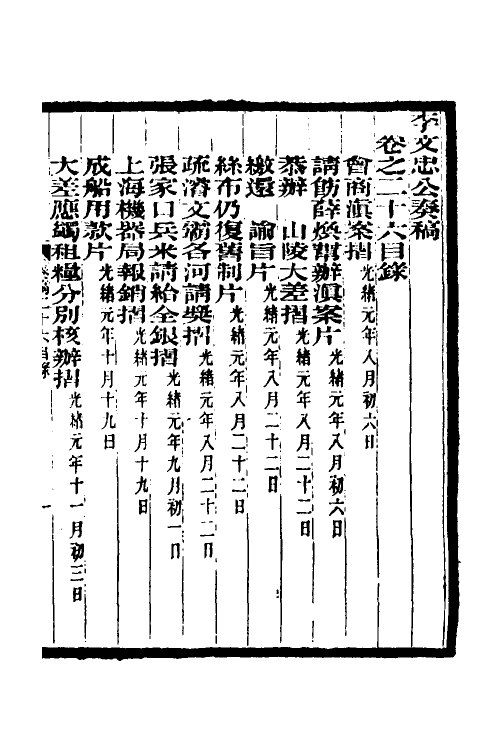 李文忠公奏稿
卷之二十六目錄
會商滇案摺光緒元年八月初六日
請飭薛煥幫辦滇案片光緒元年八月初六日
恭辦　山陵大差摺光緒元年八月二十二日
繳還　諭旨片光緒元年八月二十二日
絲布仍復舊制片光緒元年八月二十二日
疏濬文霸各河請獎摺光緒元年八月二十二日
張家口兵米請給全銀摺光緒元年九月初一日
上海機器局報銷摺光緒元年十月十九日
成船用款片光緒元年十月十九日
大差應蠲租糧分別核辦摺光緒元年十一月初三日